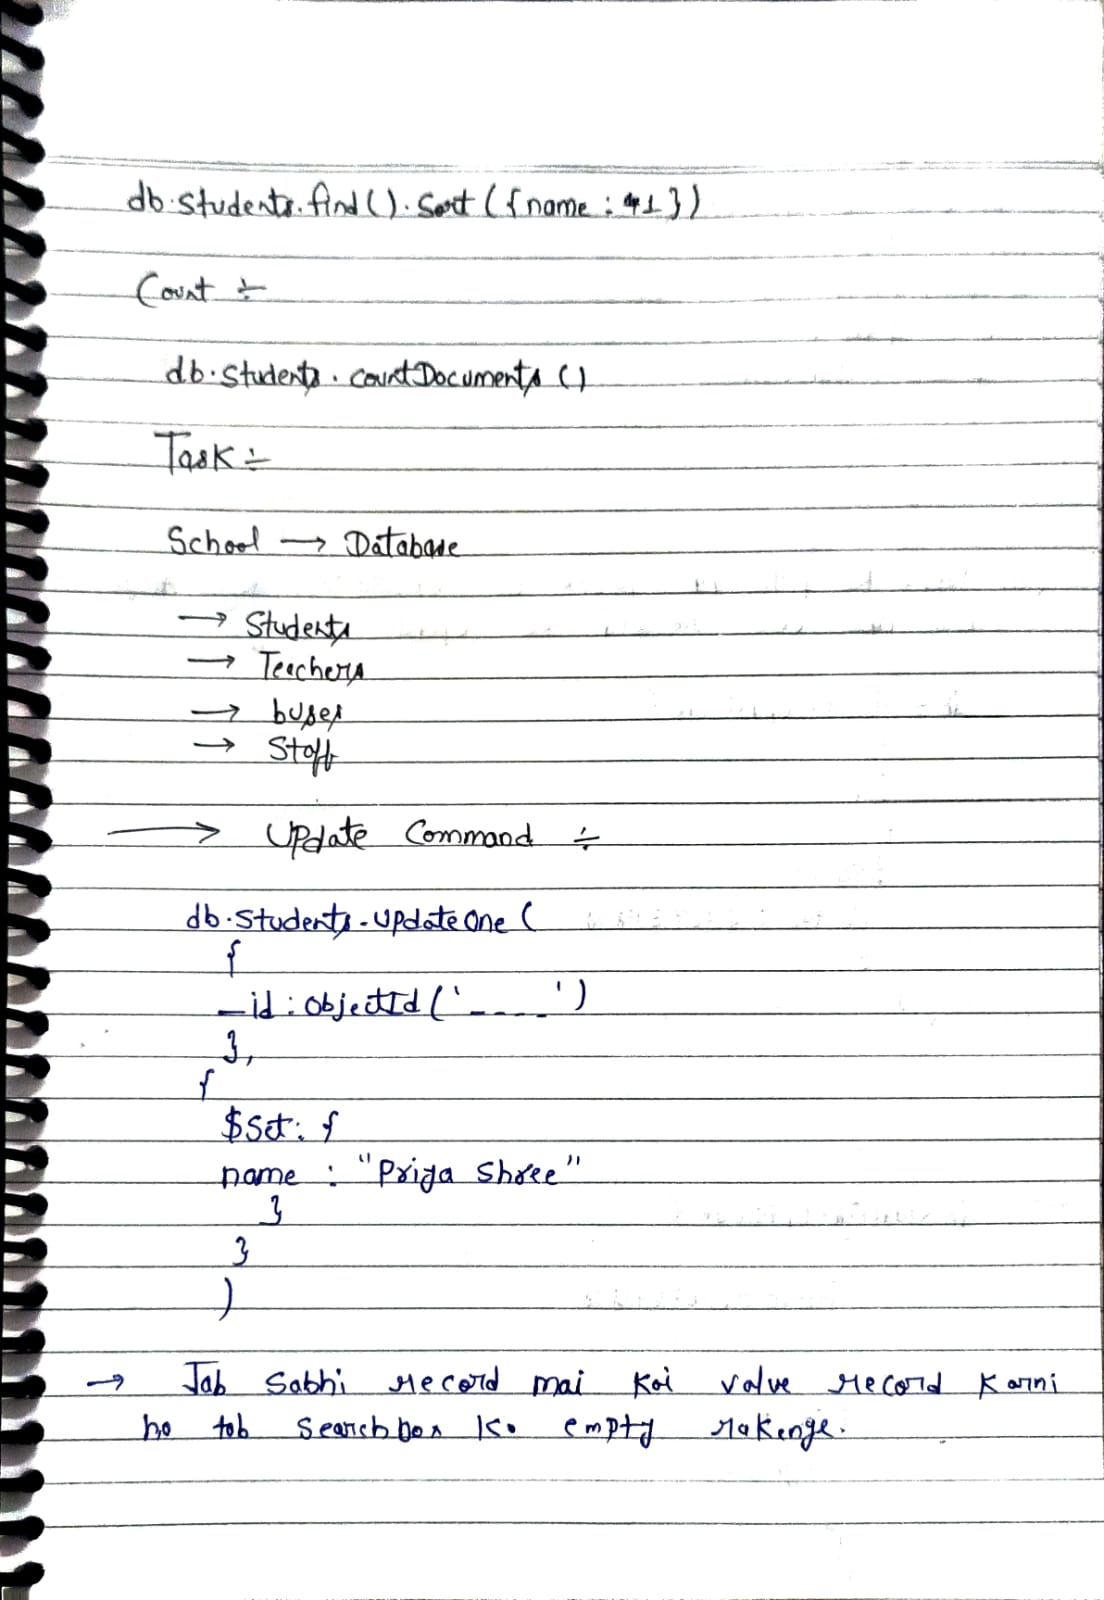 db.students.find().sort({name: 1})
Count ÷
db.students.countDocuments()
Task ÷
School → Database
→ Students
→ Teachers
→ buses
→ Staff
→ Update Command ÷
db.students.updateOne(
{
_id: ObjectId('----')
},
{
$set: {
name : "Priya Shree"
}
}
)
→ Jab Sabhi record mai koi value record karni
ho tob searchbox ko empty rakenge.